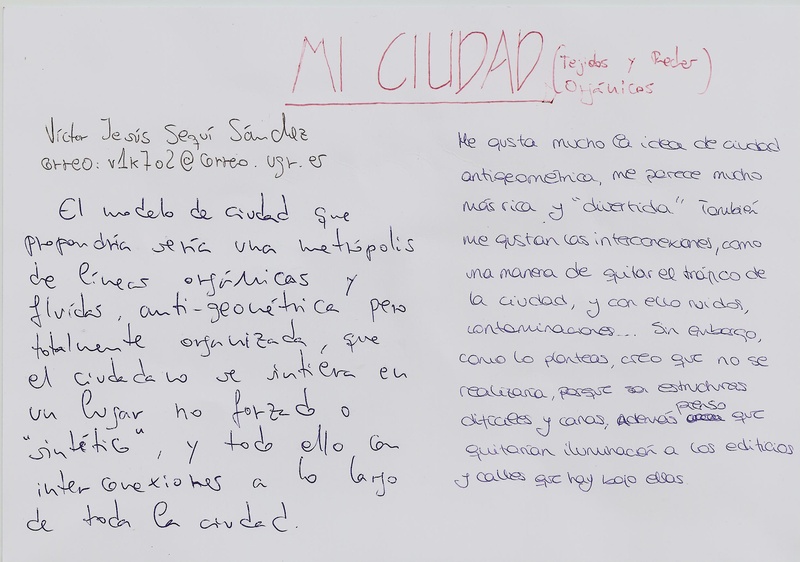 MI CIUDAD (Tejidos y Redes
Orgánicos)
Víctor Jesús Seguí Sánchez
correo: v1k702@correo.ugr.es
El modelo de ciudad que
propondría sería una metrópolis
de líneas orgánicas y
fluidas, anti-geométrica pero
totalmente organizada, que
el ciudadano se sintiera en
un lugar no forzado o
"sintético", y todo ello con
interconexiones a lo largo
de toda la ciudad.
Me gusta mucho la idea de ciudad
antigeométrica, me parece mucho
más rica y "divertida" También
me gustan las interconexiones, como
una manera de quitar el tráfico de
la ciudad, y con ello ruidos,
contaminaciones... Sin embargo,
como lo planteas, creo que no se
realizaria, porque son estructuras
difíciles y caras, además pienso que
quitarían iluminación a los edificios
y calles que hay bajo ellas